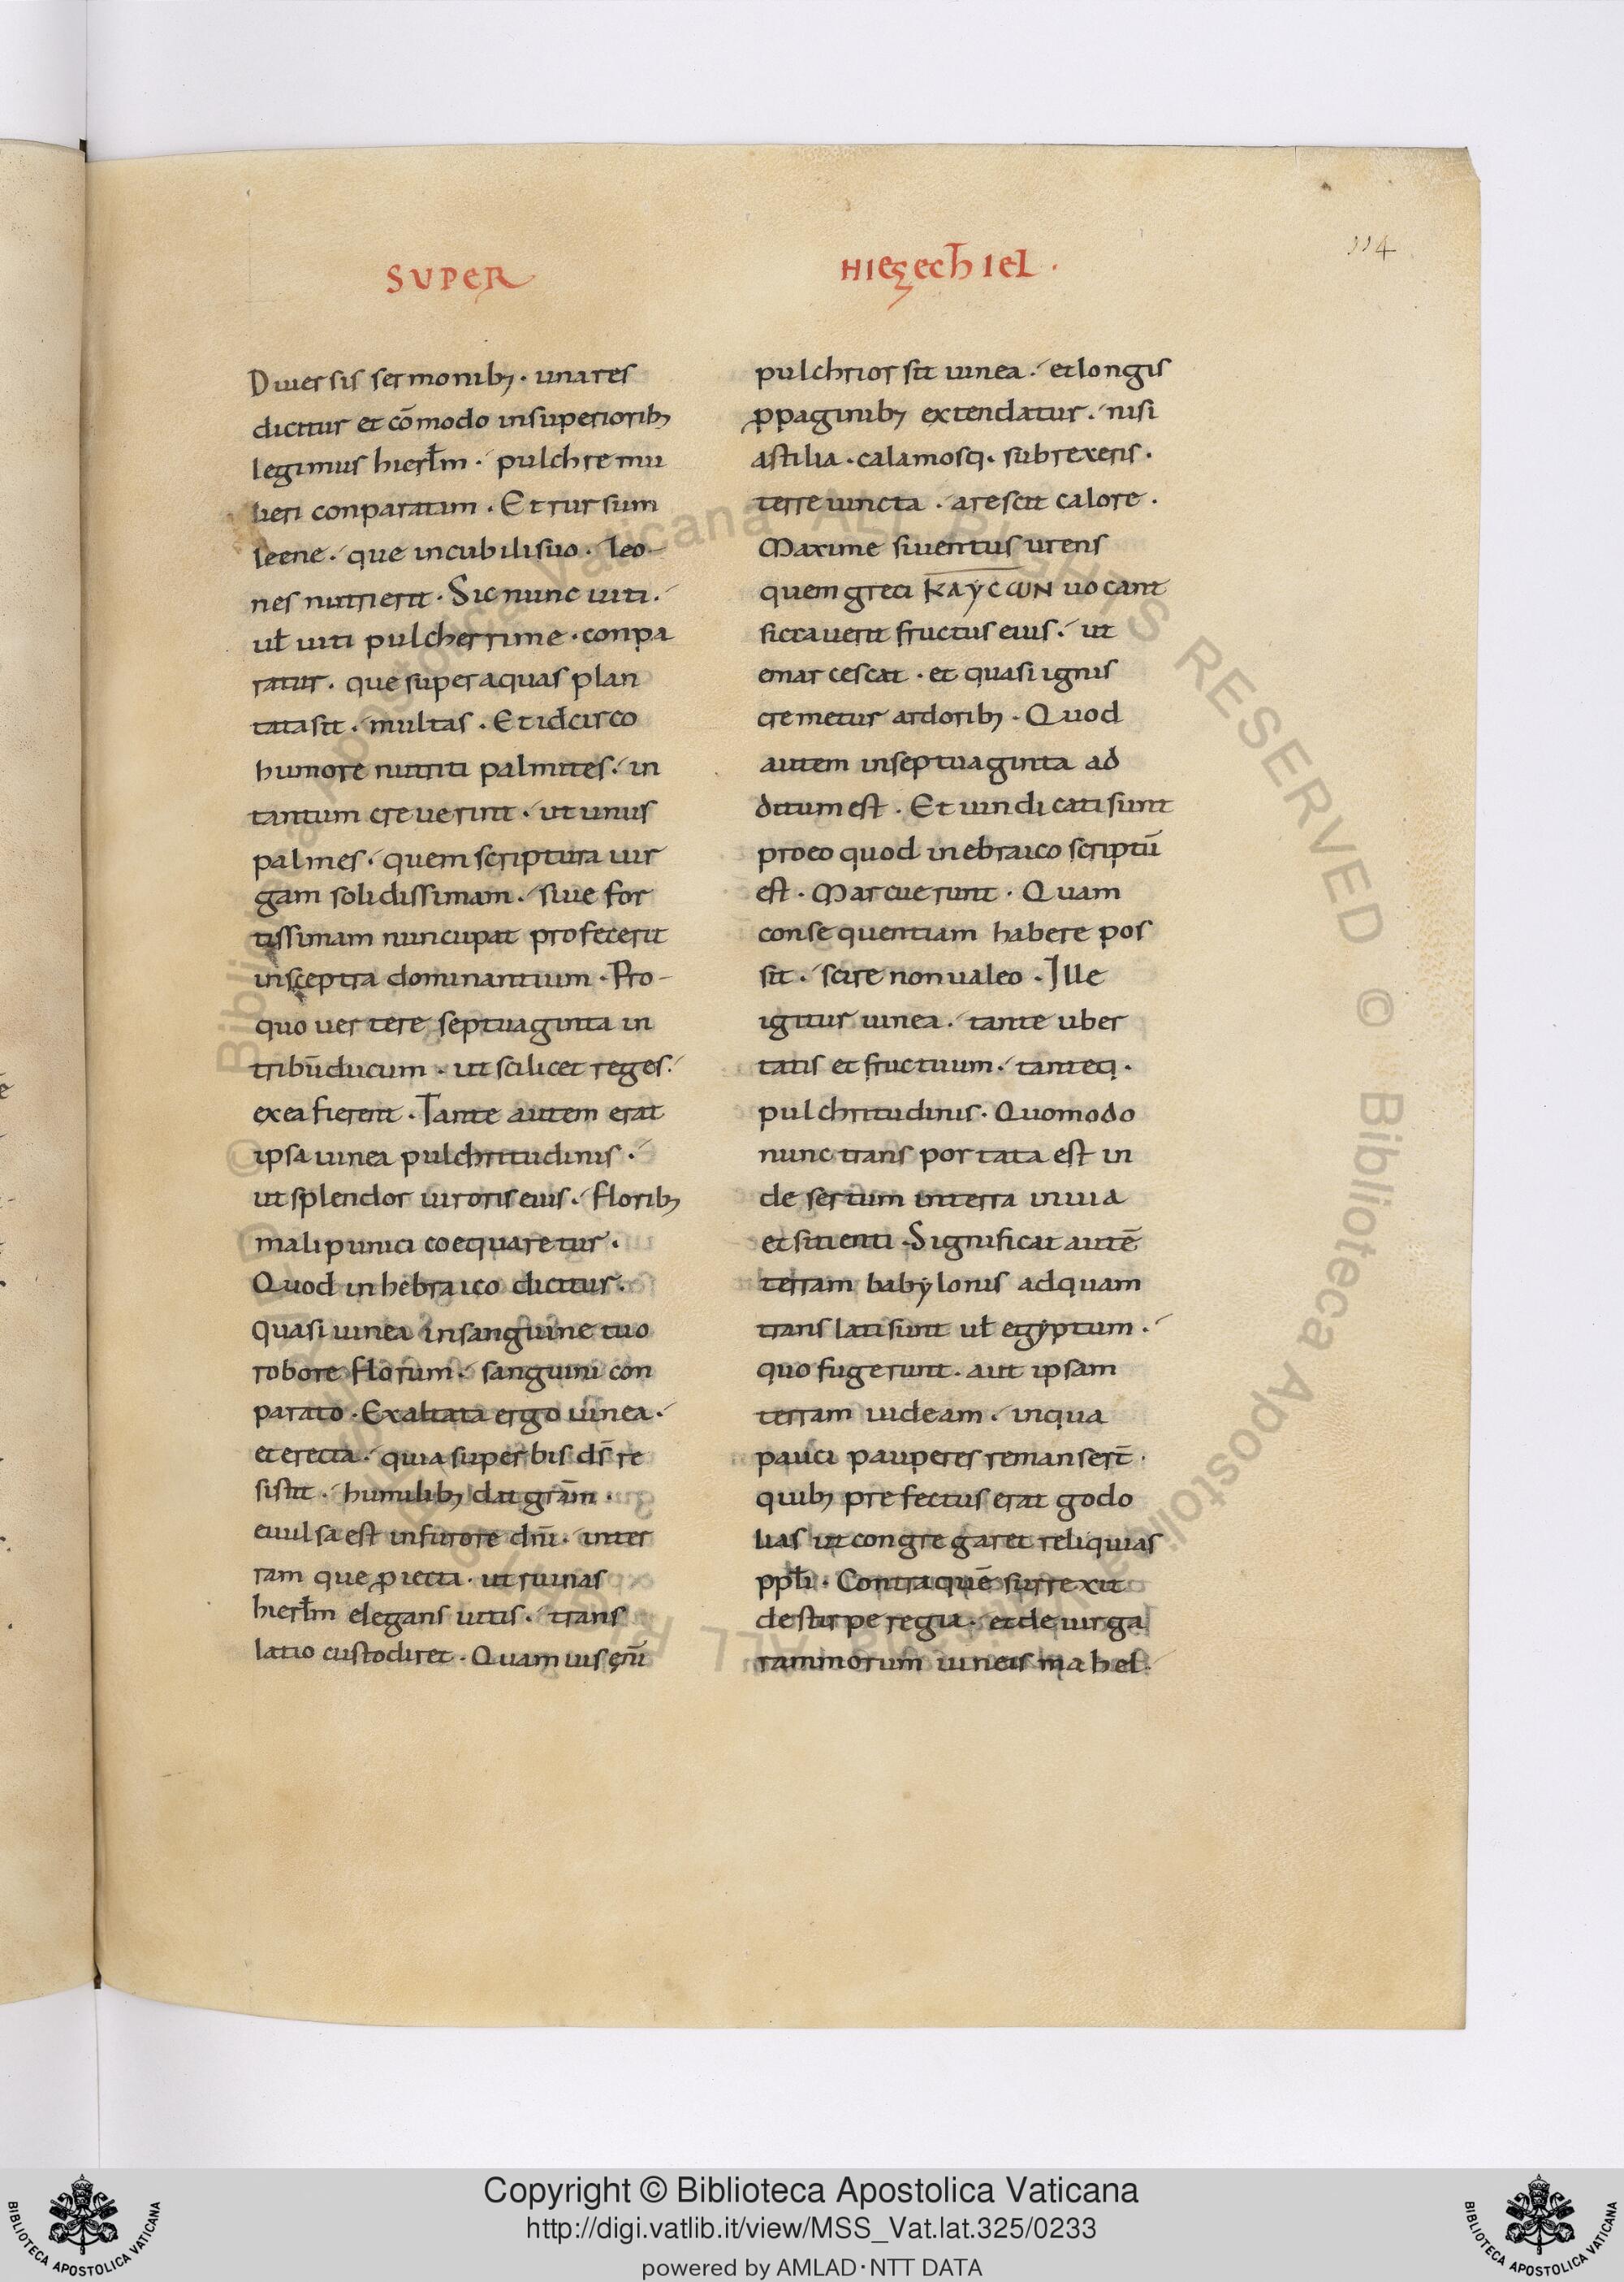 SUPER
HIEZECHIEL ·
114
Diuersis sermonibꝫ · una res
dicitur et cōmodo in superioribꝫ
legimus hierłm · pulchre mu
lieri conparatam · Et rursum
leene · que in cubili suo · leo-
nes nutrierit · Sic nunc uiti ·
uł uiti pulcherrime · conpa
ratur · que super aquas plan
tata sit · multas · Et idcirco
humore nutriti palmites · in
tantum creuerint · ut unus
palmes · quem scriptura uir
gam solidissimam · siue for
tissimam nuncupat profecerit
in sceptra dominantium · Pro-
quo uertere septuaginta in
tribū ducum · ut scilicet reges ·
ex ea fierent · Tante autem erat
ipsa uinea pulchritudinis ·
ut splendor uiroris eius · floribꝫ
mali punici coequaretur ·
Quod in hebraico dicitur ·
quasi uinea in sanguine tuo
robore florum · sanguini con
parato · Exaltata ergo uinea ·
et erecta · quia superbis d̄s re
sistit · humilibꝫ dat grām ·
euulsa est in furore dn̄i · in ter
ram que ꝓiecta · ut ruinas
hierłm elegans uitis · trans
latio custodiret · Quam uis eni̅
pulchrior sit uinea · et longis
ꝓpaginibꝫ extendatur · nisi
astilia · calamosq· subrexeris ·
terre iuncta · arescit calore ·
Maxime si uentus urens
quem greci KAYCωN uocant
siccauerit fructus eius · ut
emarcescat · et quasi ignis
cremetur ardoribꝫ · Quod
autem in septuaginta ad
ditum est · Et uindicati sunt
pro eo quod in ebraico scriptū
est · Marcuerunt · Quam
consequentiam habere pos
sit · scire non ualeo · Ille
igitur uinea · tante uber
tatis et fructuum · tanteq·
pulchritudinis · Quomodo
nunc transportata est in
desertum in terra inuia
et sitienti · Significat autē
terram babylonis ad quam
translati sunt uł egyptum ·
quo fugerunt · aut ipsam
terram iudeam · in qua
pauci pauperes remanser̄t ·
quibꝫ prefectus erat godo
lias ut congregaret reliquias
ppłi · Contra quē surrexit
de stirpe regia · et de uirga
raminorum uineis mahel ·
Copyright © Biblioteca Apostolica Vaticana
http://digi.vatlib.it/view/MSS_Vat.lat.325/0233
powered by AMLAD·NTT DATA
BIBLIOTECA APOSTOLICA VATICANA
BIBLIOTECA APOSTOLICA VATICANA